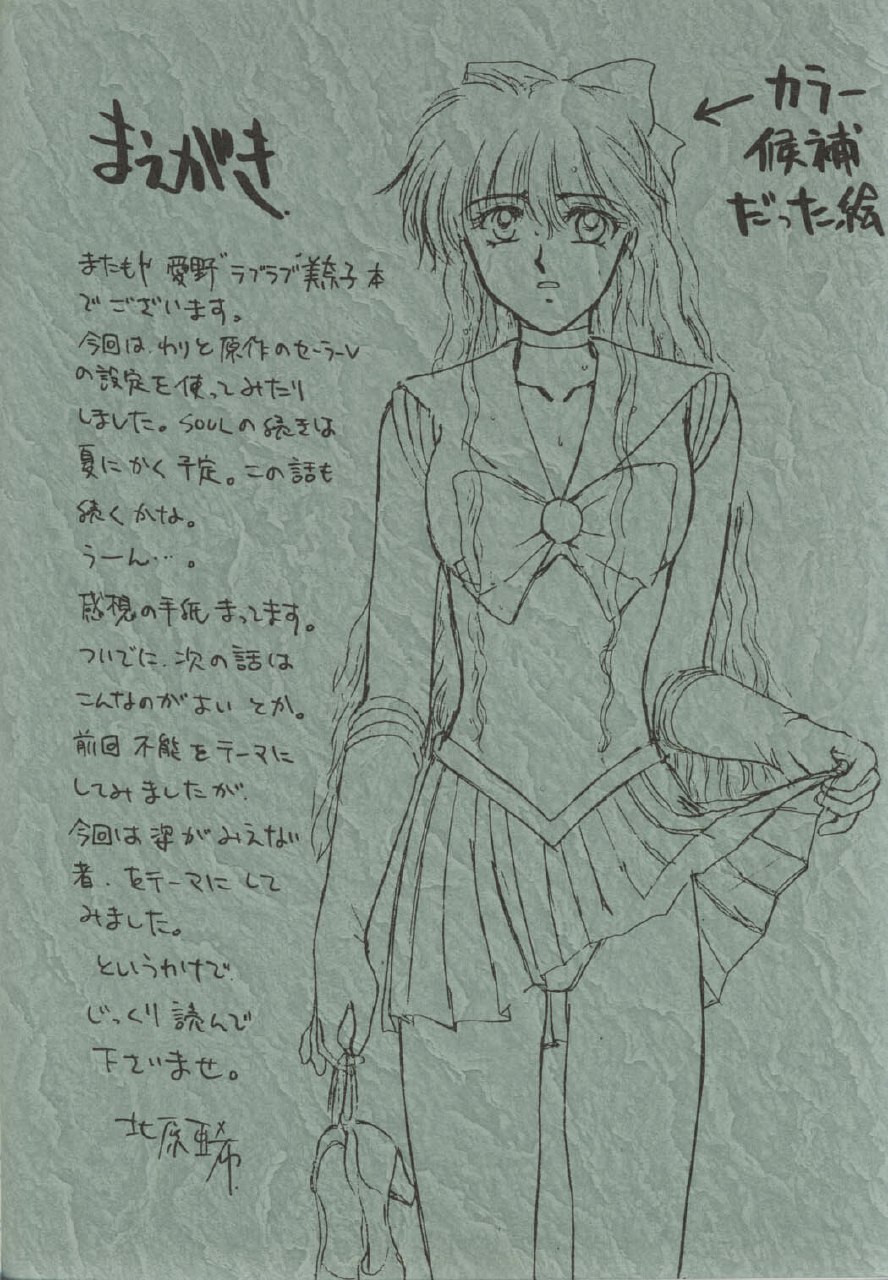 まえがき
またもや愛野ラブラブ美奈子本
でございます。
今回は、わりと原作のセーラーV
の設定を使ってみたり
しました。SOULの続きは
夏にかく予定。この話も
続くかな。
うーん…。
感想の手紙まってます。
ついでに、次の話は
こんなのがよいとか。
前回不能をテーマに
してみましたが、
今回は姿がみえない
者、をテーマにして
みました。
というわけで
じっくり読んで
下さいませ。
北原亜希
カラー
候補
だった絵